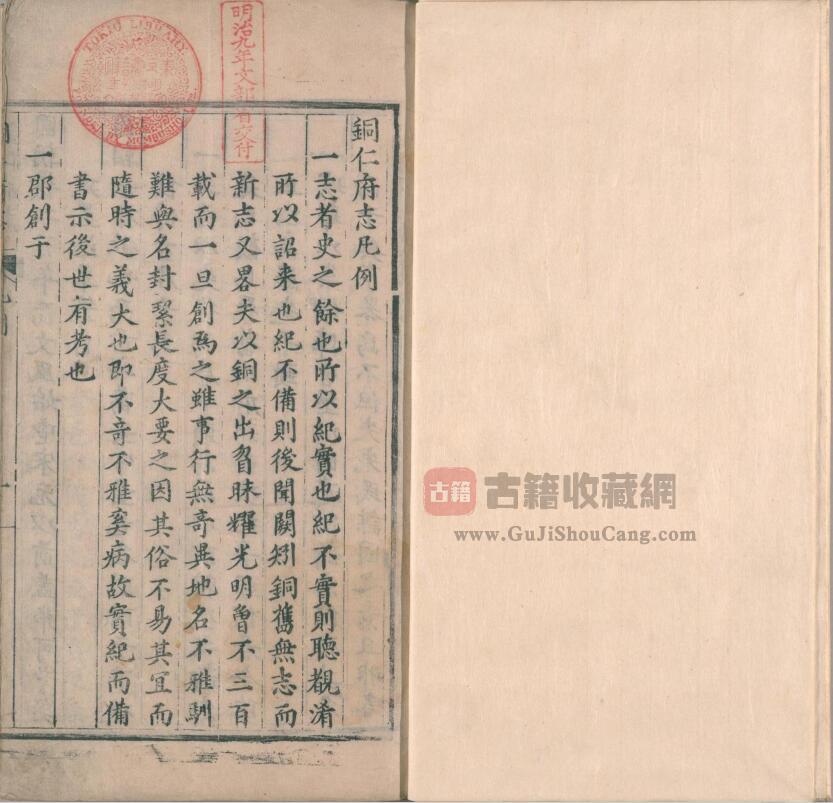 銅仁府志凡例
一志者史之餘也所以紀實也紀不實則聽覩淆
所以詔来也紀不備則後聞闕矧銅舊無志而
新志又畧夫以銅之出昬昧耀光明曾不三百
載而一旦創爲之雖事行無竒異地名不雅馴
難與名封緊長度大要之因其俗不易其宜而
隨時之義大也即不竒不雅奚病故實紀而備
書示後世有考也
一郡創于
明治九年文部省交付
TOKIO LIBRARY
古籍
古籍收藏網
www.GuJiShouCang.com